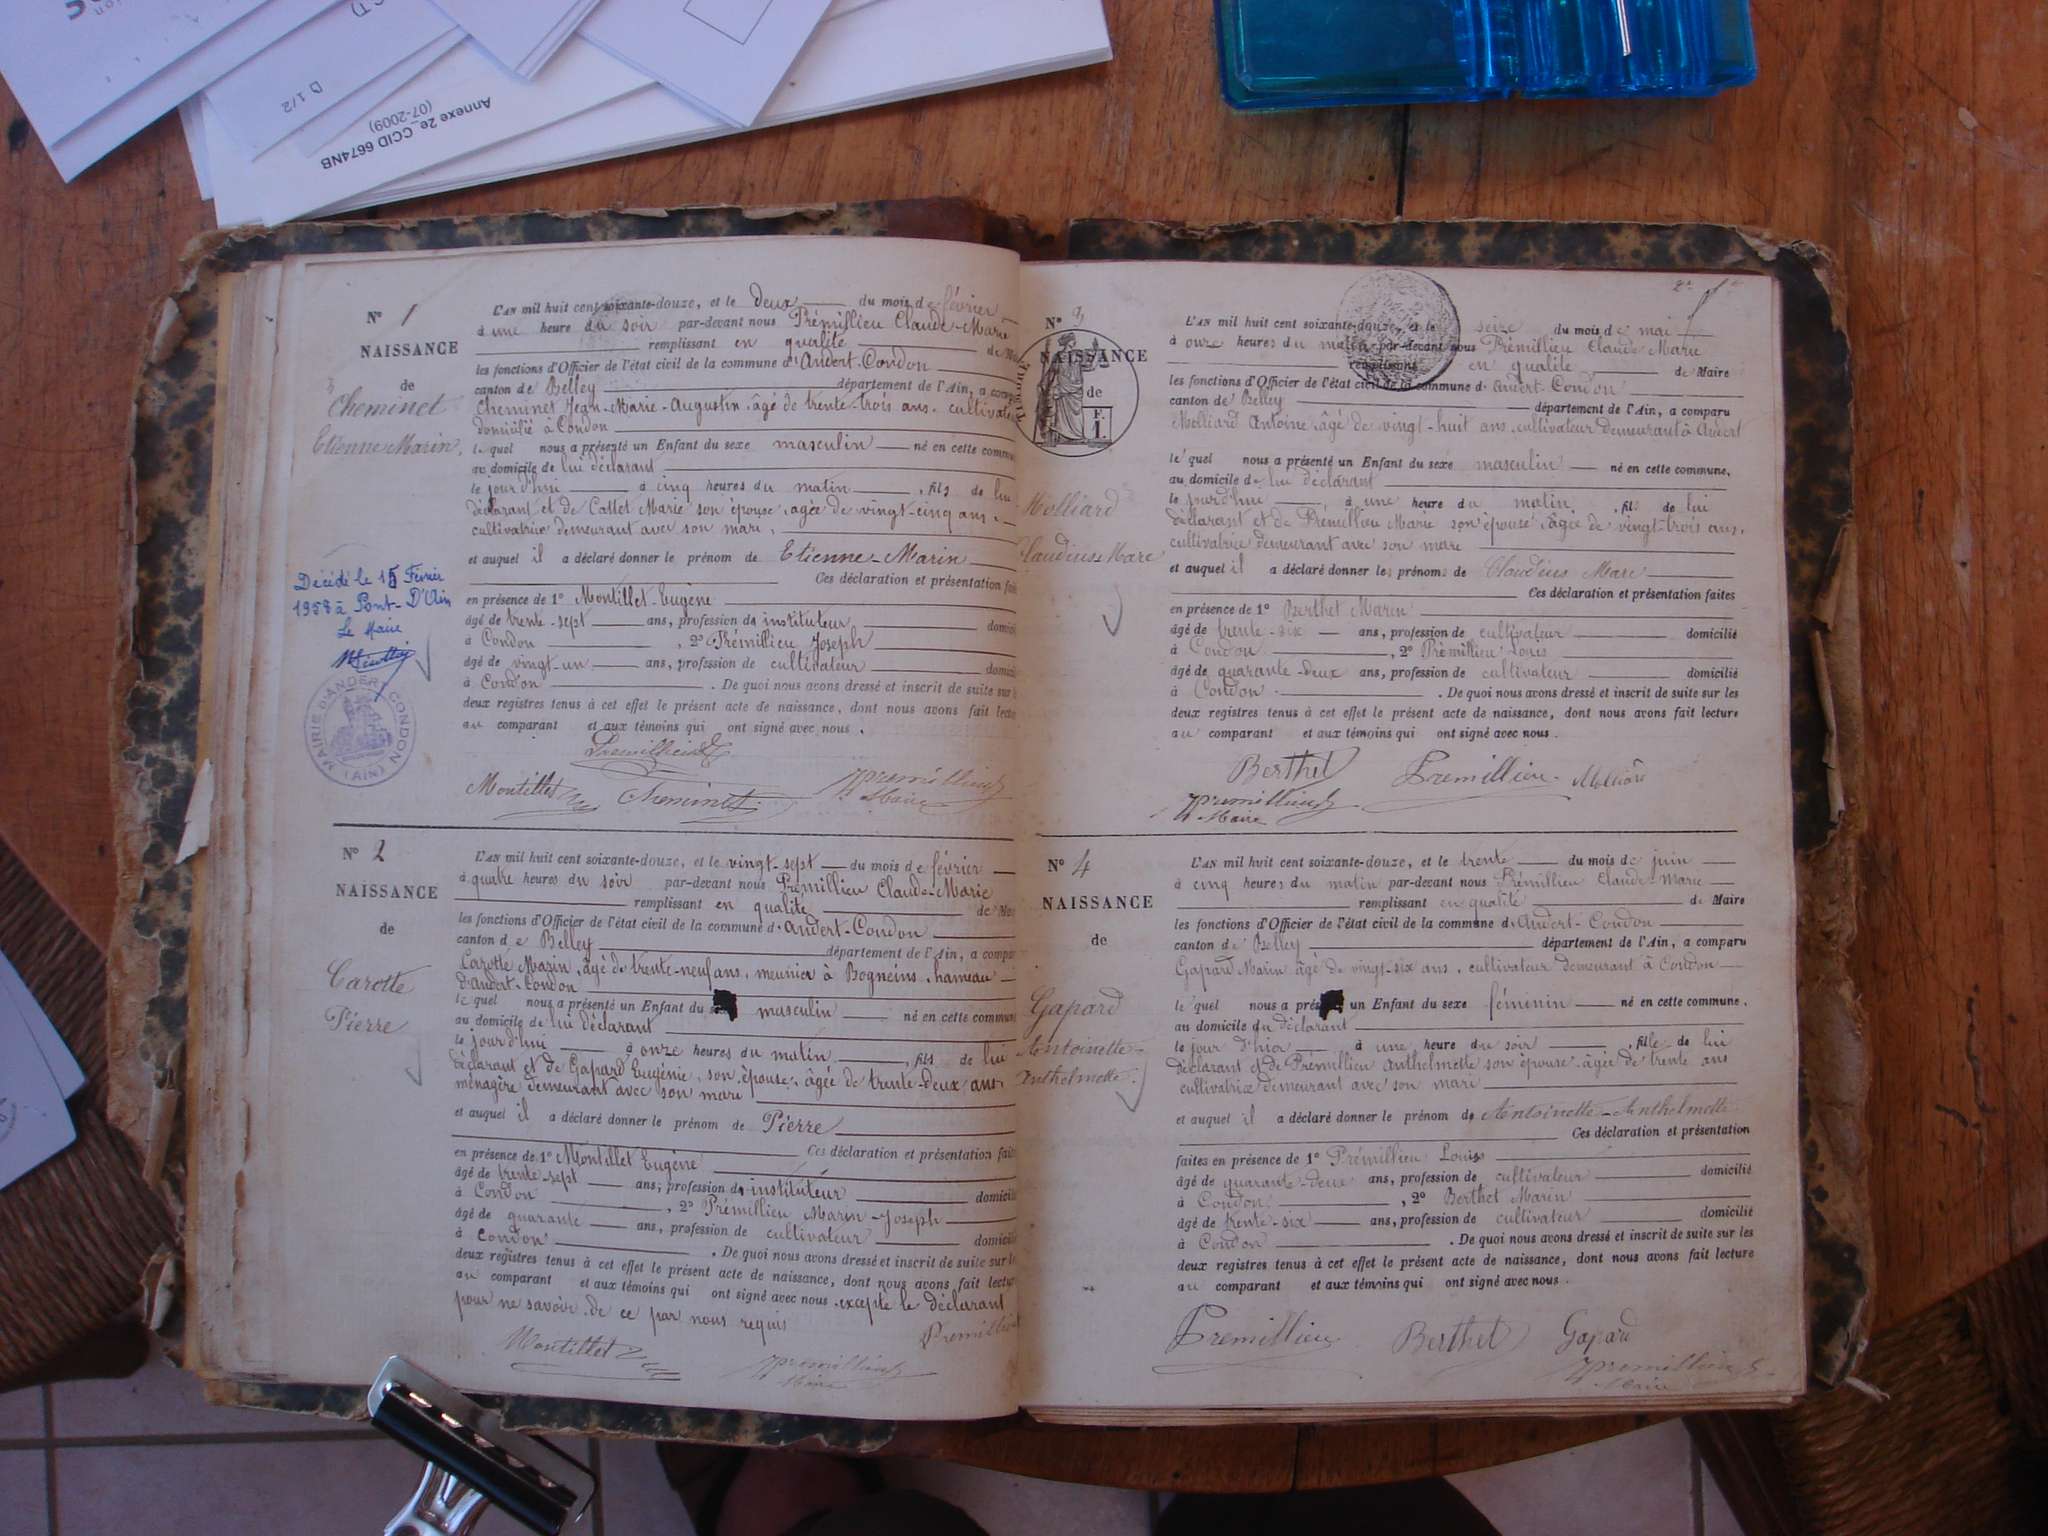 D 1/2
Annexe 2e_CCID 6674NB
(07-2009)
N° 1
NAISSANCE
de
Cheminet
Etienne Marin.
L'AN mil huit cent soixante-douze, et le deux du mois de février
à une heure du soir par-devant nous Prémillieu Claude-Marie
remplissant en qualité de
les fonctions d'Officier de l'état civil de la commune d'Andert-Condon
canton de Belley département de l'Ain, a
Cheminet Jean-Marie-Augustin, âgé de trente-trois ans, 
domicilié à Condon
le quel nous a présenté un Enfant du sexe masculin né en cette
au domicile de lui déclarant
le jourd'hui à cinq heures du matin, fils de lui
déclarant et de Callet Marie son épouse, agée de vingt-cinq ans,
cultivatrice demeurant avec son mari,
et auquel il a déclaré donner le prénom de Etienne-Marin
Ces déclaration et présentation
en présence de 1° Montillet Eugène
âgé de trente-sept ans, profession de instituteur
à Condon, 2° Prémillieu Joseph
âgé de vingt-un ans, profession de cultivateur
à Condon. De quoi nous avons dressé et inscrit de suite sur
deux registres tenus à cet effet le présent acte de naissance, dont nous avons fait
au comparant et aux témoins qui ont signé avec nous.
Décédé le 15 Février
1958 à Pont-D'Ain
Le Maire
MAIRIE D'ANDERT CONDON
(AIN)
Montillet Cheminet Premillieu
Maire
N° 2
NAISSANCE
de
Carotte
Pierre
L'AN mil huit cent soixante-douze, et le vingt-sept du mois de février
à quatre heures du soir par-devant nous Prémillieu Claude-Marie
remplissant en qualité de
les fonctions d'Officier de l'état civil de la commune d'Andert-Condon
canton de Belley département de l'Ain, a
Carotte Marin, âgé de trente-neuf ans, meunier à Bogneins, hameau
d'Andert-Condon
le quel nous a présenté un Enfant du masculin né en cette
au domicile de lui déclarant
le jourd'hui à onze heures du matin, fils de lui
déclarant et de Gapard Eugénie, son épouse, âgée de trente-deux ans
ménagère demeurant avec son mari
et auquel il a déclaré donner le prénom de Pierre
Ces déclaration et présentation
en présence de 1° Montillet Eugène
âgé de trente-sept ans, profession de instituteur
à Condon, 2° Prémillieu Marin-Joseph
âgé de quarante ans, profession de cultivateur
à Condon. De quoi nous avons dressé et inscrit de suite sur
deux registres tenus à cet effet le présent acte de naissance, dont nous avons fait
au comparant et aux témoins qui ont signé avec nous, excepté le déclarant
pour ne savoir de ce par nous requis
Montillet Premillieu
Maire
N° 3
NAISSANCE
de
F.
1.
Molliard
Claudius-Marc
L'AN mil huit cent soixante-douze, et le seize du mois de mai
à onze heures du matin par-devant nous Prémillieu Claude Marie
remplissant en qualité de Maire
les fonctions d'Officier de l'état civil de la commune d'Andert-Condon
canton de Belley département de l'Ain, a comparu
Molliard Antoine, âgé de vingt-huit ans, cultivateur demeurant à Andert
le quel nous a présenté un Enfant du sexe masculin né en cette commune,
au domicile de lui déclarant
le jourd'hui, à une heure du matin, fils de lui
déclarant et de Prémillieu Marie son épouse, âgée de vingt-trois ans,
cultivatrice demeurant avec son mari
et auquel il a déclaré donner les prénoms de Claudius Marc
Ces déclaration et présentation faites
en présence de 1° Berthet Marin
âgé de trente-six ans, profession de cultivateur domicilié
à Condon, 2° Prémillieu Louis
âgé de quarante-deux ans, profession de cultivateur domicilié
à Condon. De quoi nous avons dressé et inscrit de suite sur les
deux registres tenus à cet effet le présent acte de naissance, dont nous avons fait lecture
au comparant et aux témoins qui ont signé avec nous.
Berthet Premillieu
Premillieu
Maire
N° 4
NAISSANCE
de
Gapard
Antoinette-
Anthelmette.
L'AN mil huit cent soixante-douze, et le trente du mois de juin
à cinq heures du matin par-devant nous Prémillieu Claude Marie
remplissant en qualité de Maire
les fonctions d'Officier de l'état civil de la commune d'Andert-Condon
canton de Belley département de l'Ain, a comparu
Gapard Marin âgé de vingt-six ans, cultivateur demeurant à Condon
le quel nous a un Enfant du sexe féminin né en cette commune,
au domicile du déclarant
le jour d'hier à une heure du soir, fille de lui
déclarant et de Prémillieu Anthelmette son épouse, âgée de trente ans
cultivatrice demeurant avec son mari
et auquel il a déclaré donner le prénom de Antoinette-Anthelmette
Ces déclaration et présentation
faites en présence de 1° Prémillieu Louis
âgé de quarante-deux ans, profession de cultivateur domicilié
à Condon, 2° Berthet Marin
âgé de trente-six ans, profession de cultivateur domicilié
à Condon. De quoi nous avons dressé et inscrit de suite sur les
deux registres tenus à cet effet le présent acte de naissance, dont nous avons fait lecture
au comparant et aux témoins qui ont signé avec nous.
Premillieu Berthet Gapard
Premillieu
Maire